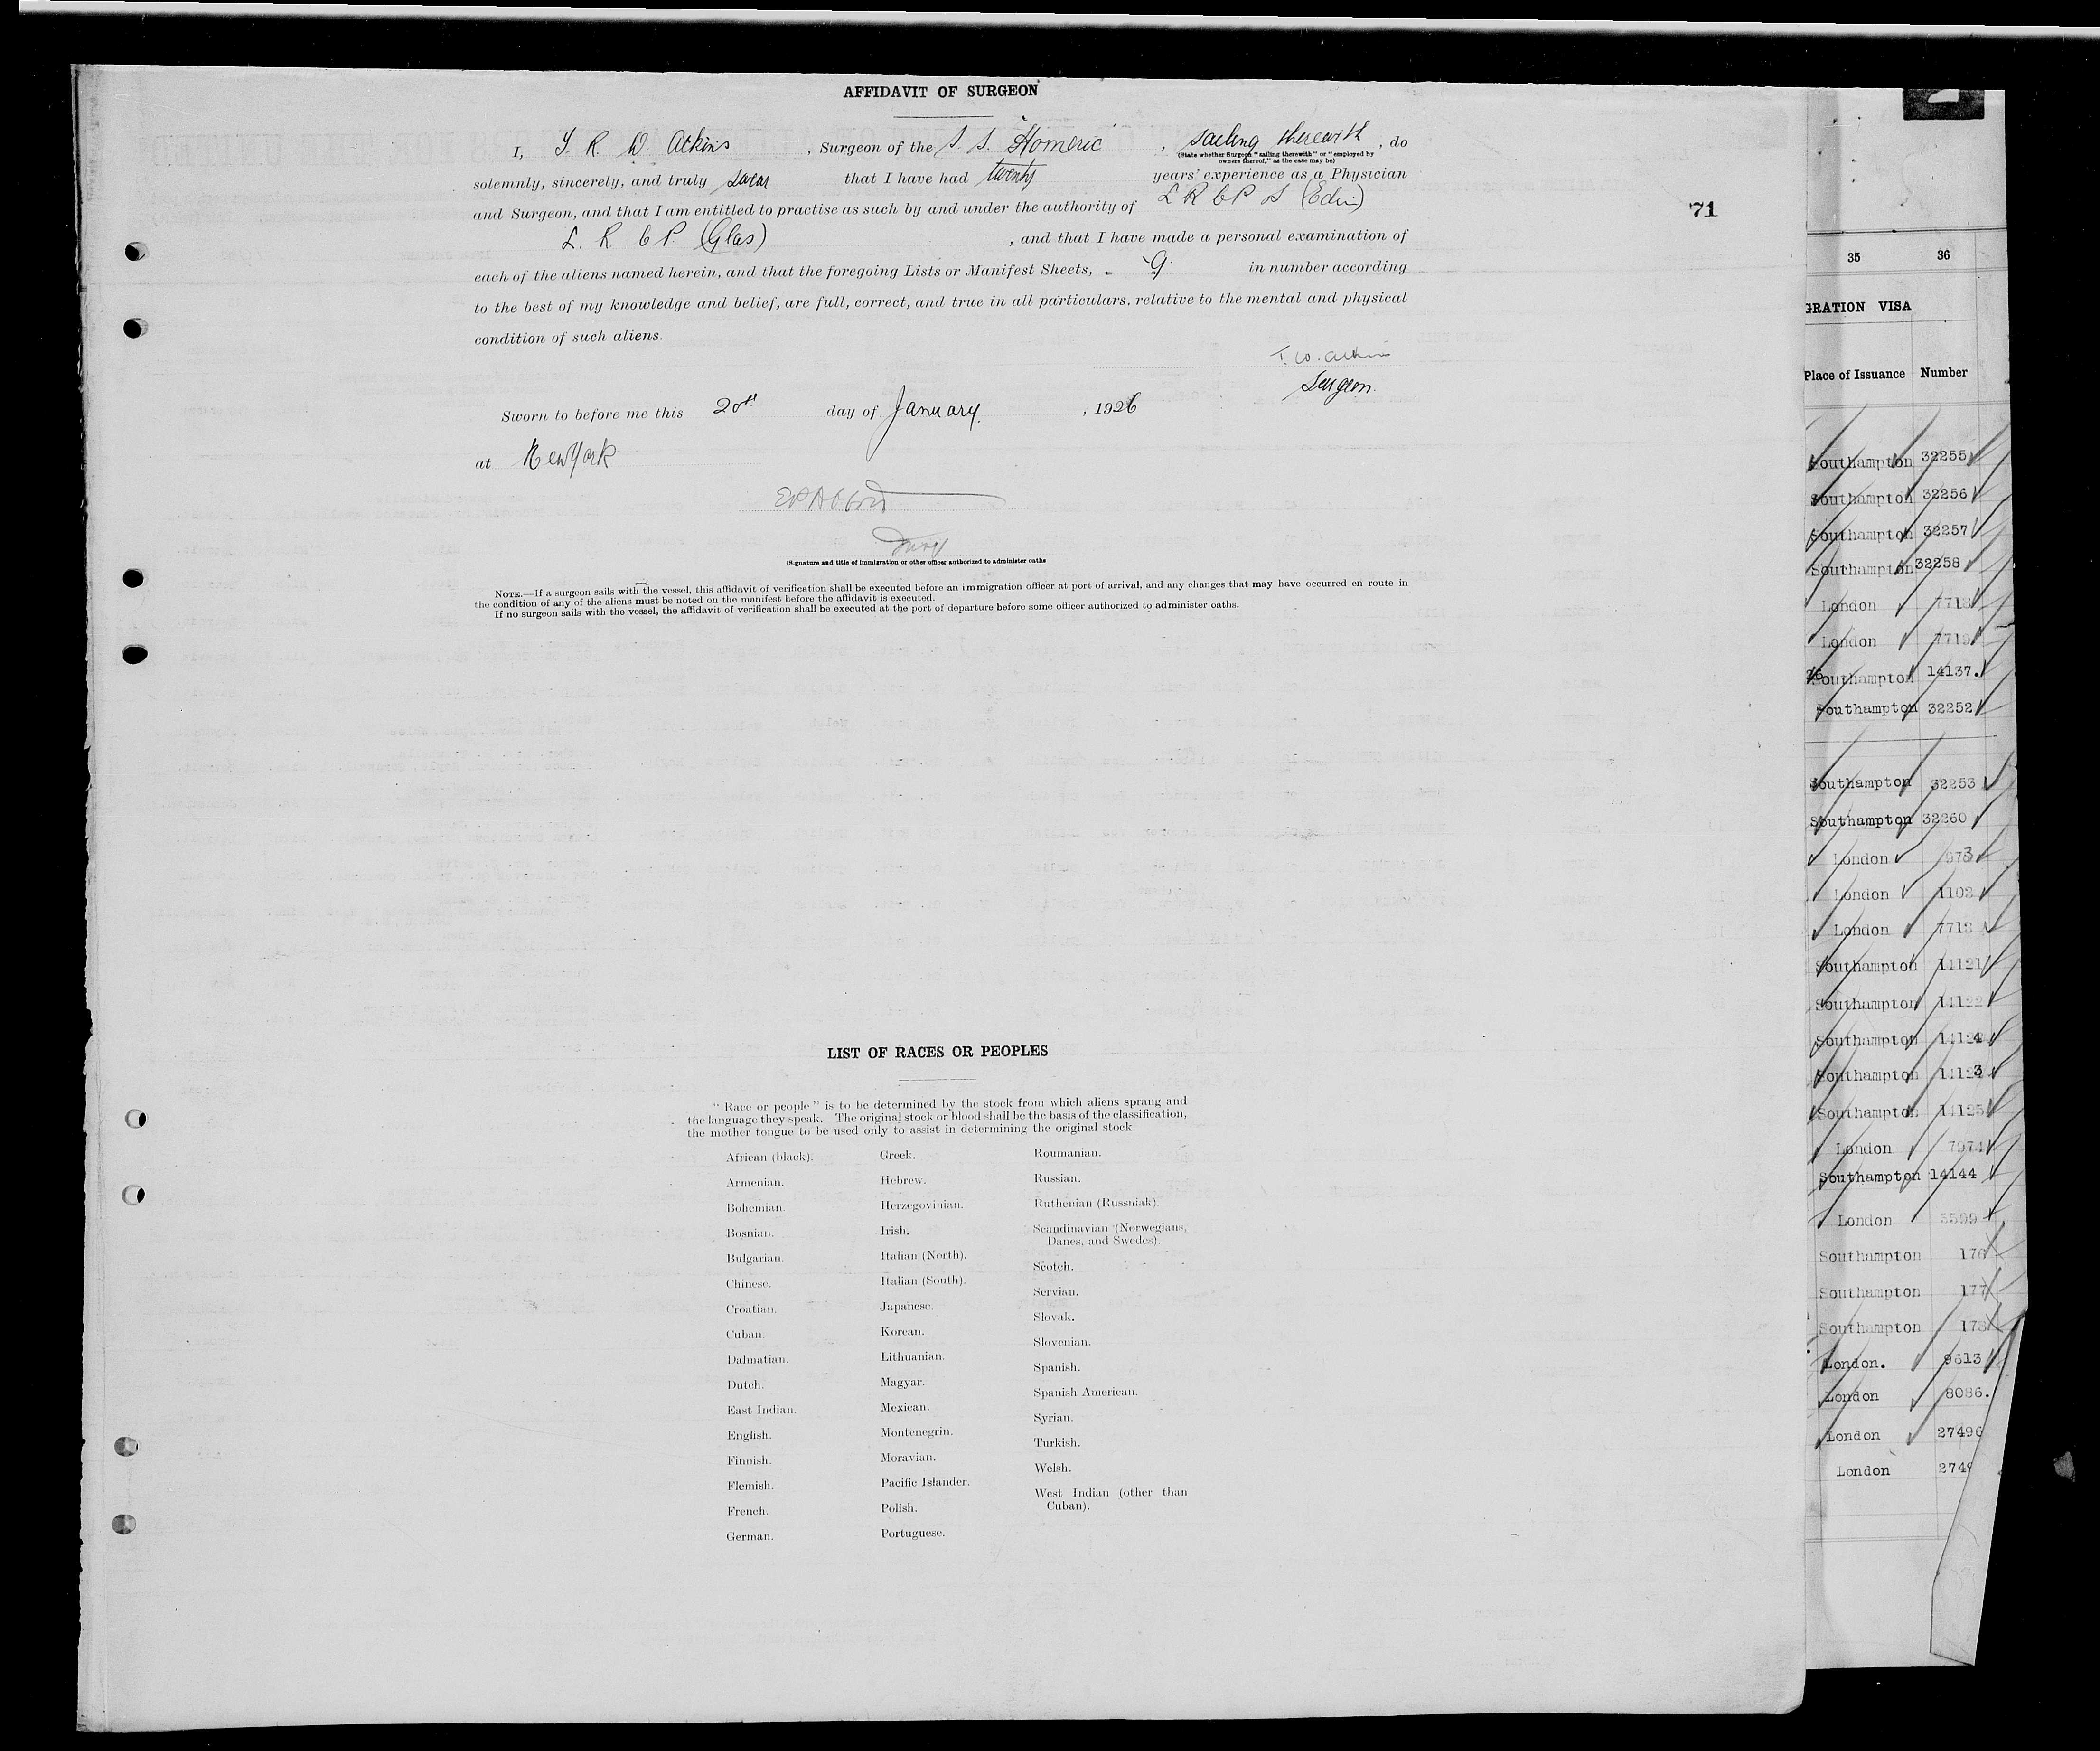 AFFIDAVIT OF SURGEON
I, T. R. W. Atkins, Surgeon of the S. S. "Homeric", sailing therewith, do
(State whether Surgeon "sailing therewith" or "employed by
owners thereof," as the case may be)
solemnly, sincerely, and truly swear that I have had twenty years' experience as a Physician
and Surgeon, and that I am entitled to practise as such by and under the authority of L R C P S (Edin)
L. R. C P. (Glas), and that I have made a personal examination of
each of the aliens named herein, and that the foregoing Lists or Manifest Sheets, 9 in number according
to the best of my knowledge and belief, are full, correct, and true in all particulars, relative to the mental and physical
condition of such aliens.
Surgeon.
Sworn to before me this 20th day of January, 1926
at New York
(Signature and title of immigration or other officer authorized to administer oaths
NOTE.—If a surgeon sails with the vessel, this affidavit of verification shall be executed before an immigration officer at port of arrival, and any changes that may have occurred en route in
the condition of any of the aliens must be noted on the manifest before the affidavit is executed.
If no surgeon sails with the vessel, the affidavit of verification shall be executed at the port of departure before some officer authorized to administer oaths.
71
LIST OF RACES OR PEOPLES
"Race or people" is to be determined by the stock from which aliens sprang and
the language they speak. The original stock or blood shall be the basis of the classification,
the mother tongue to be used only to assist in determining the original stock.
African (black).
Armenian.
Bohemian.
Bosnian.
Bulgarian.
Chinese.
Croatian.
Cuban.
Dalmatian.
Dutch.
East Indian.
English.
Finnish.
Flemish.
French.
German.
Greek.
Hebrew.
Herzegovinian.
Irish.
Italian (North).
Italian (South).
Japanese.
Korean.
Lithuanian.
Magyar.
Mexican.
Montenegrin.
Moravian.
Pacific Islander.
Polish.
Portuguese.
Roumanian.
Russian.
Ruthenian (Russniak).
Scandinavian (Norwegians,
Danes, and Swedes).
Scotch.
Servian.
Slovak.
Slovenian.
Spanish.
Spanish American.
Syrian.
Turkish.
Welsh.
West Indian (other than
Cuban).
35 36
GRATION VISA
Place of Issuance Number
Southampton 32255
Southampton 32256
Southampton 32257
Southampton 32258
London
London 7719
Southampton 14137.
Southampton 32252
Southampton 32253
Southampton 32260
London
London
London
Southampton 14121
Southampton 14122
Southampton 14124
Southampton 14123
Southampton 14125
London 7974
Southampton 14144
London
Southampton 176
Southampton 177
Southampton 178
London. 9613
London 8086.
London 27496
London 2749